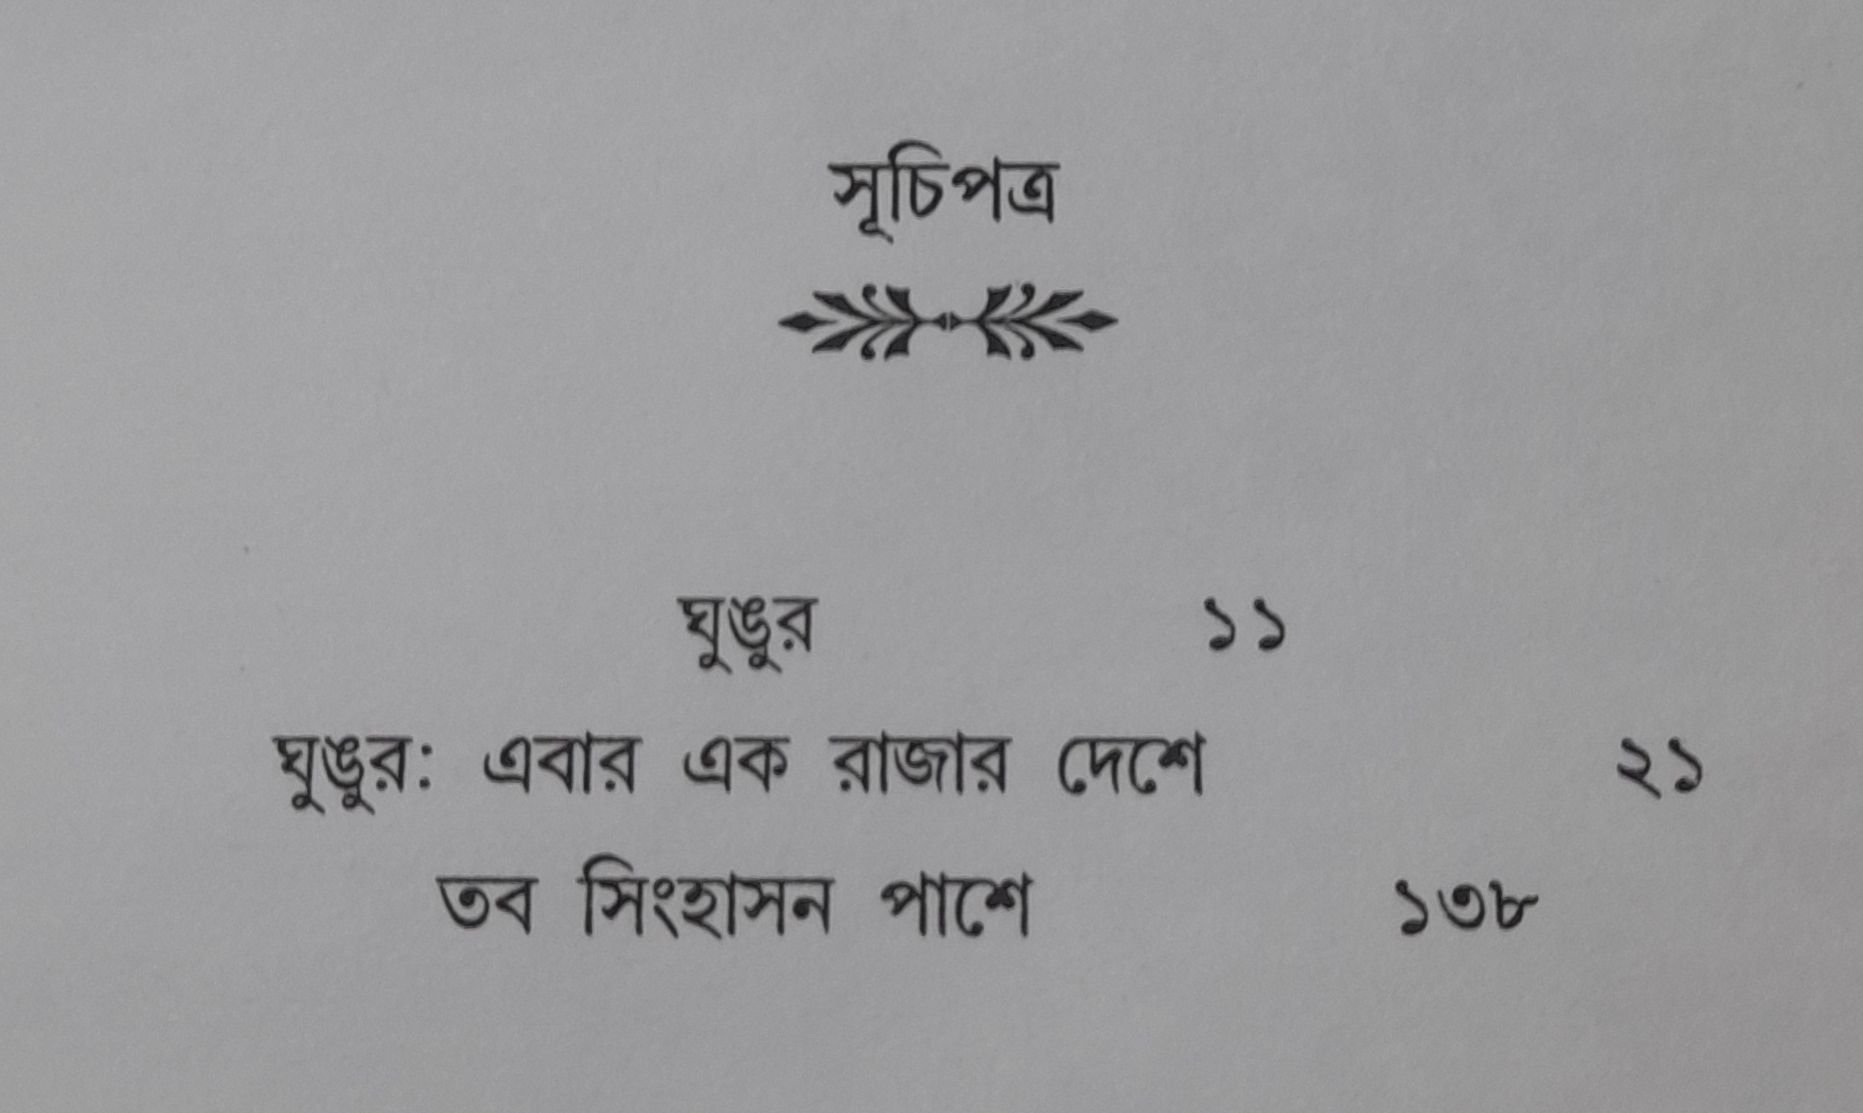 সূচিপত্র
ঘুঙুর ১১
ঘুঙুর: এবার এক রাজার দেশে ২১
তব সিংহাসন পাশে ১৩৮